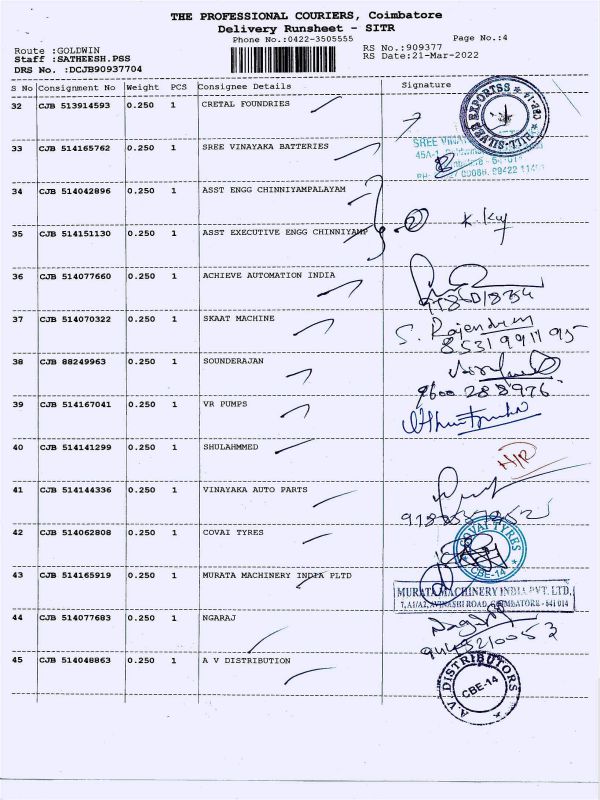 THE PROFESSIONAL COURIERS, Coimbatore
Delivery Runsheet - SITR
Phone No.:0422-3505555
Page No.:4
Route :GOLDWIN
RS No.:909377
Staff :SATHEESH.PSS
RS Date:21-Mar-2022
DRS No. :DCJB90937704
S No Consignment No Weight PCS Consignee Details Signature
32 CJB 513914593 0.250 1 CRETAL FOUNDRIES
33 CJB 514165762 0.250 1 SREE VINAYAKA BATTERIES
34 CJB 514042896 0.250 1 ASST ENGG CHINNIYAMPALAYAM
35 CJB 514151130 0.250 1 ASST EXECUTIVE ENGG CHINNIYAMP
36 CJB 514077660 0.250 1 ACHIEVE AUTOMATION INDIA
37 CJB 514070322 0.250 1 SKAAT MACHINE
S. Rajendran
38 CJB 88249963 0.250 1 SOUNDERAJAN
9600 288976
39 CJB 514167041 0.250 1 VR PUMPS
40 CJB 514141299 0.250 1 SHULAHMMED
N/R
41 CJB 514144336 0.250 1 VINAYAKA AUTO PARTS
42 CJB 514062808 0.250 1 COVAI TYRES
COVAI TYRES
CBE-14
43 CJB 514165919 0.250 1 MURATA MACHINERY INDIA PLTD
MURATA MACHINERY INDIA PVT. LTD,
AVINASHI ROAD, COIMBATORE - 641 014
44 CJB 514077683 0.250 1 NGARAJ
9443210053
45 CJB 514048863 0.250 1 A V DISTRIBUTION
A.V. DISTRIBUTORS
CBE-14